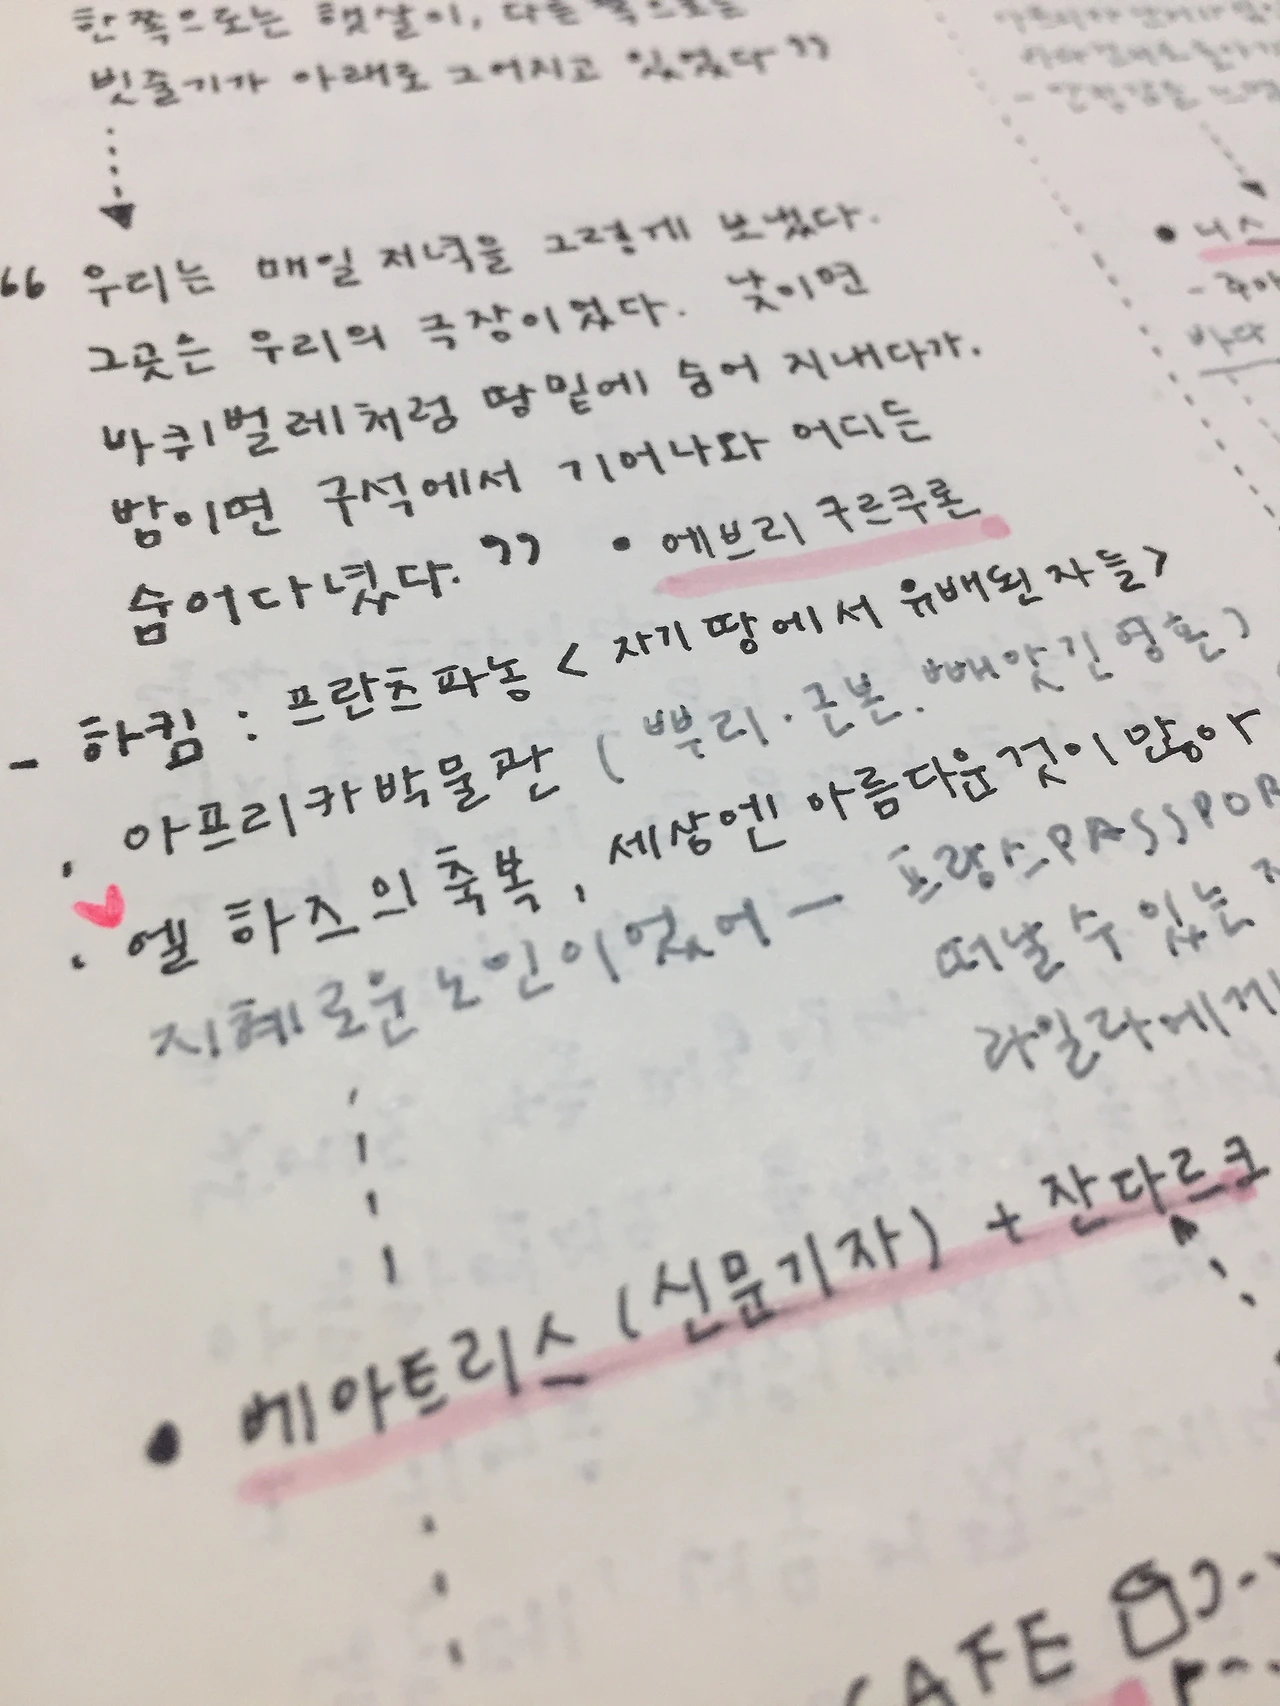 한쪽으로는 햇살이, 다른 쪽으로는
빗줄기가 아래로 그어지고 있었다"
"우리는 매일 저녁을 그렇게 보냈다.
그곳은 우리의 극장이었다. 낮이면
바퀴벌레처럼 땅밑에 숨어 지내다가.
밤이면 구석에서 기어나와 어디든
숨어다녔다." • 에브리 쿠르쿠론
- 하킴 : 프란츠파농 <자기 땅에서 유배된 자들>
. 아프리카박물관 (뿌리·근본. 빼앗긴영혼)
. 엘 하즈의 축복, 세상엔 아름다운것이 많아
지혜로운 노인이었어 - 프랑스PASSPOR
떠날 수 있는
라일라에게
• 베아트리스 (신문기자) + 잔다르크
CAFE
• 니스
바다